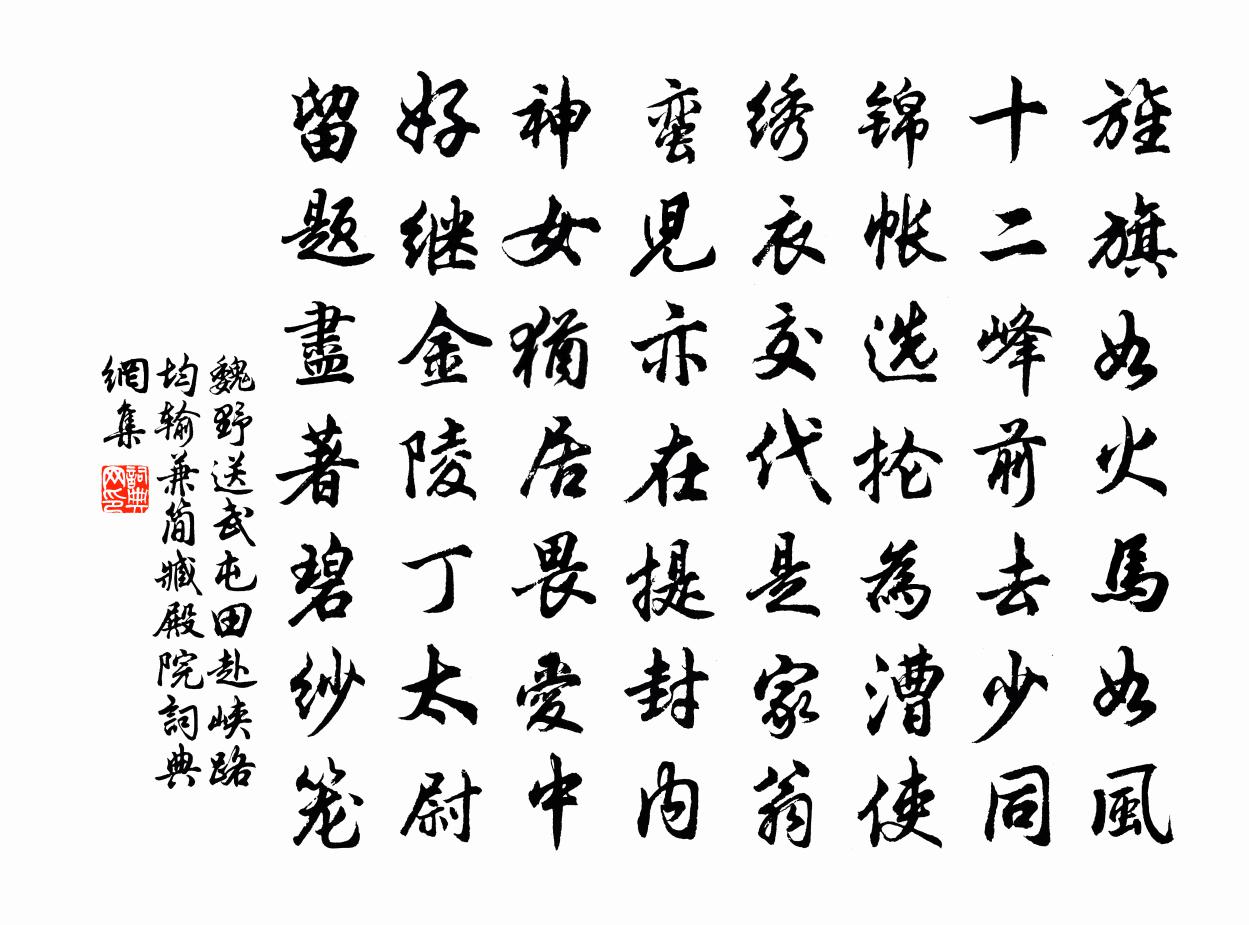 旌旗如火馬如風
十二峰前去少同
锦帐选抡為漕使
绣衣交代是家翁
蛮兒亦在提封内
神女猶居畏愛中
好继金陵丁太尉
留题盡著碧纱笼
魏野送武屯田赴峡路
均输兼简臧殿院詞典
網集
詞典
网印